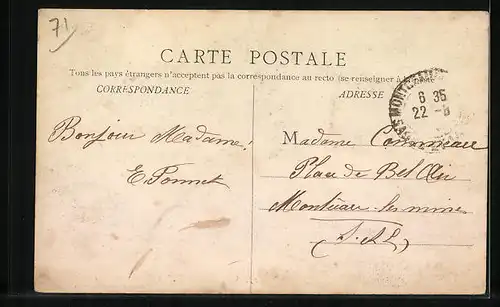 71
CARTE POSTALE
Tous les pays étrangers n'acceptent pas la correspondance au recto (se renseigner à la
CORRESPONDANCE
ADRESSE
6 35
22 -8
Bonjour Madame!
Madame
Place de Bel Air
Montceau-les-mines
(S.-&-L.)